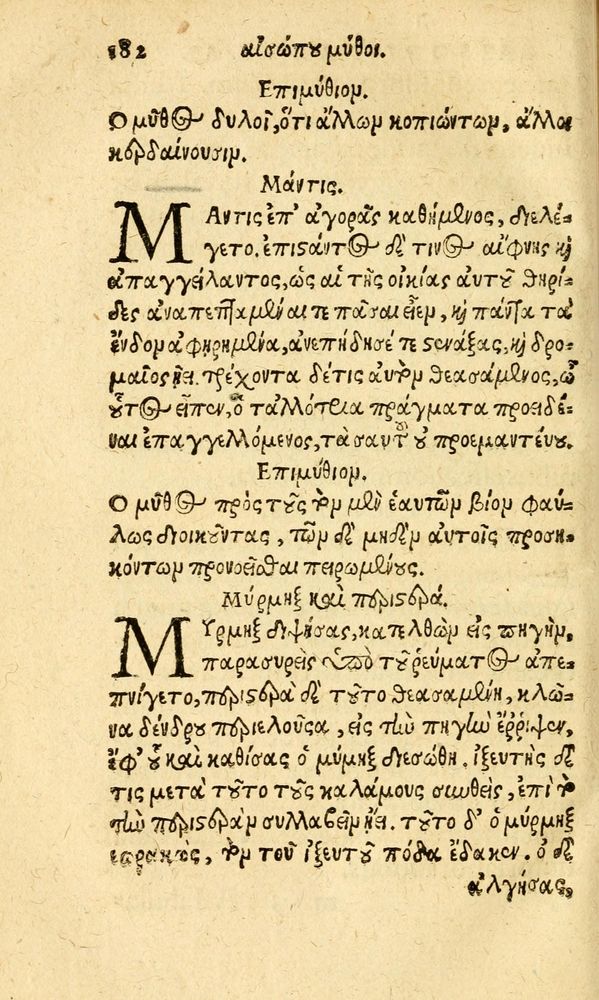 182 αἰσώπου μῦθοι.
Επιμύθιον.
Ο μῦθος δυλοῖ, ὅτι ἄλλων κοπιώντων, ἄλλοι
κερδαίνουσιν.
Μάντις.
ΜΑντις ἐπ' ἀγορᾶς καθήμενος, διελέ-
γετο. ἐπιστάντος δέ τινος αἴφνης καὶ
ἀπαγγείλαντος, ὡς αἱ τῆς οἰκίας αὐτοῦ θηρί-
δες ἀναπεπταμέναι τε πᾶσαι εἶεν, καὶ πάντα τὰ
ἔνδον ἀφηρημένα, ἀνεπήδησέ τε στενάξας, καὶ δρο-
μαῖος ᾔει. τρέχοντα δέ τις αὐτὸν θεασάμενος, ὦ
οὗτος εἶπεν, ὁ τἀλλότρια πράγματα προειδέ-
ναι ἐπαγγελλόμενος, τὰ σαυτοῦ οὐ προεμαντεύου.
Επιμύθιον.
Ο μῦθος πρὸς τοὺς τὸν μὲν ἑαυτῶν βίον φαύ-
λως διοικοῦντας, τῶν δὲ μηδὲν αὐτοῖς προση-
κόντων προνοεῖσθαι πειρωμένους.
Μύρμηξ καὶ περιστερά.
ΜΥρμηξ διψήσας, κατελθὼν εἰς πηγὴν,
παρασυρεὶς ὑπὸ τοῦ ῥεύματος ἀπε-
πνίγετο, περιστερὰ δὲ τοῦτο θεασαμένη, κλῶ-
να δένδρου περιελοῦσα, εἰς τὴν πηγὴν ἔῤῥιψεν,
ἐφ' οὗ καὶ καθίσας ὁ μύρμηξ διεσώθη. ἰξευτὴς δέ
τις μετὰ τοῦτο τοὺς καλάμους συνθεὶς, ἐπὶ τὸ
τὴν περιστερὰν συλλαβεῖν ᾔει. τοῦτο δ' ὁ μύρμηξ
ἑωρακὼς, τὸν τοῦ ἰξευτοῦ πόδα ἔδακεν. ὁ δὲ
ἀλγήσας,